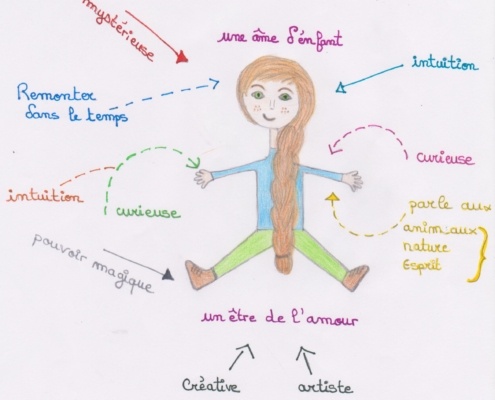 mystérieuse
une âme d'enfant
intuition
Remonter
dans le temps
curieuse
intuition
curieuse
parle aux
animaux
nature
Esprit
pouvoir magique
un être de l'amour
Créative
artiste